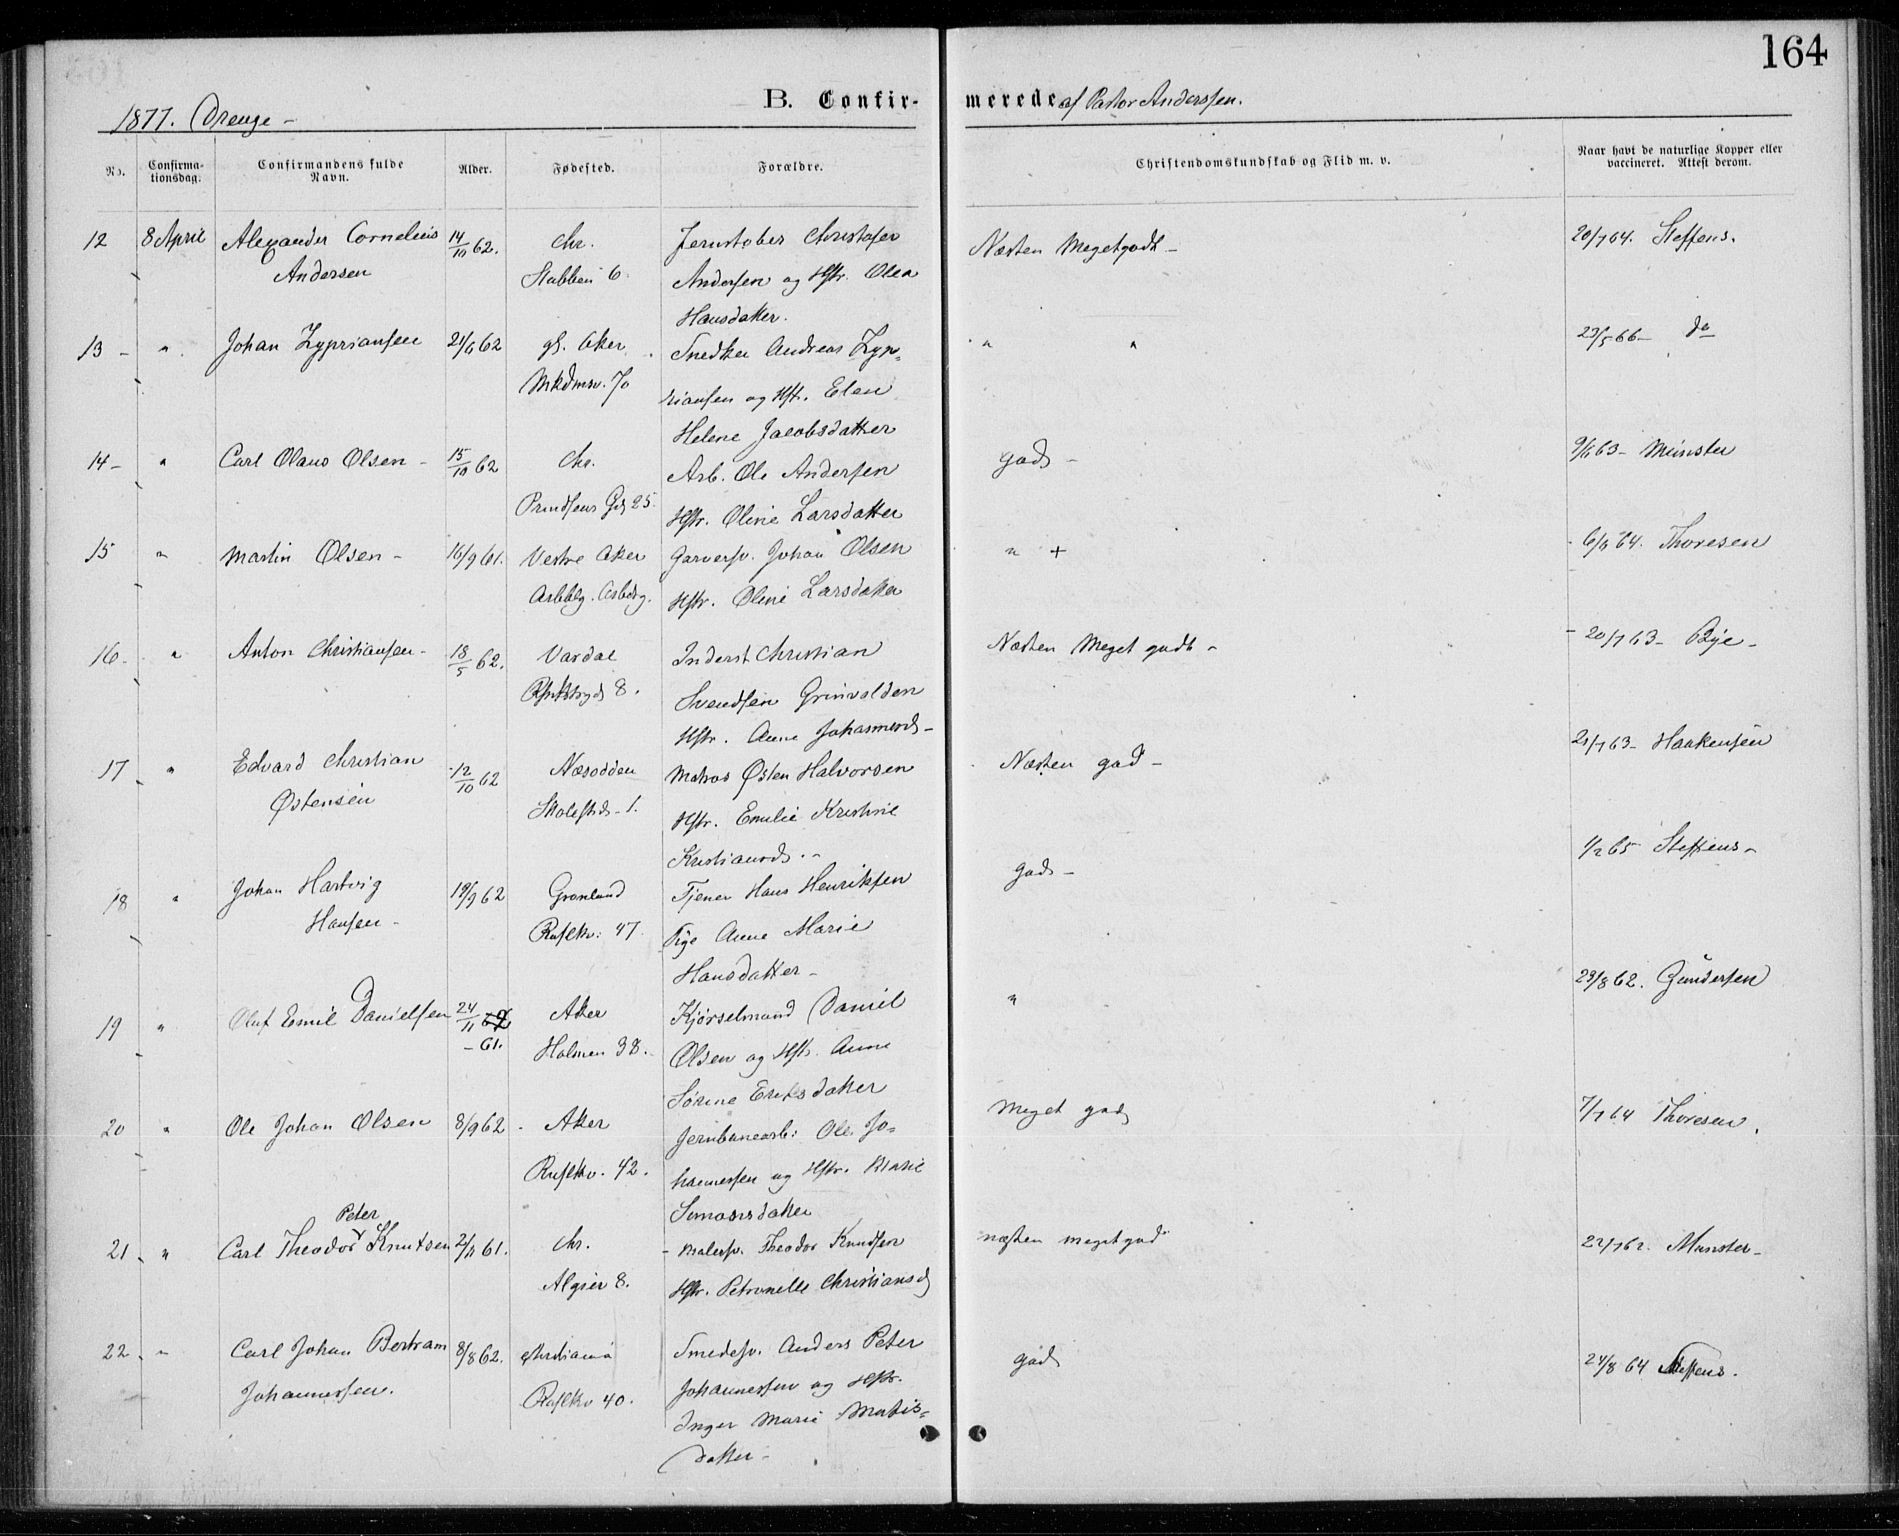 164
B. Confir- merede af Pastor Anderssen.
1877. Drenge -
No. Confirma-tionsdag. Confirmandens fulde Navn. Alder. Fødested. Forældre. Christendomskundskab og Flid m. v. Naar havt de naturlige Kopper eller vaccineret. Attest derom.
12 8 April Alexander Cornelius 14/10 62. Chr. Jernstøber Christofer Næsten Megetgodt - 20/7 64. Steffens.
Andersen Stubben 6. Andersen og Hstr. Olea
Hansdatter.
13 - " Johan Zypriansen 62 gl. Aker Snedker Andreas Zyp= " " 23/5 66 - do
70 riansen og Hstr. Elen
Helene Jacobsdatter
14 - " Carl Olaus Olsen - 15/10 62 Chr. Arb. Ole Andersen god - 63 - Münster
Prindsens Gd 25. Hstr. Oline Larsdatter
15 " Martin Olsen - 16/9 61. Vestre Aker Garversv. Johan Olsen " + 64. Thoresen
Hstr. Oline Larsdatter
16 - " Anton Christiansen - 18/5 62. Vardal Inderst Christian Næsten Meget godt - 20/7 63 - Bye -
8. Svendsen Grinvolden
Hstr. Anne Johannesd -
17 " Edvard Christian 12/10 62 Næsodden Matros Østen Halvorsen Næsten god - 21/7 63 - Haakensen
Østensen 1. Hstr. Emilie Kristine
Kristiansd. -
18 " Johan Hartvig 19/9 62 Grønland Tjener Hans Henriksen god - 1/2 65 Steffens -
Hansen - Ruselkv: 47 Pige Anne Marie
Hansdatter -
19 " Oluf Emil Danielsen 24/11 62 Aker Kjørselmand Daniel " 23/8 62. Gundersen
- 61. Holmen 38. Olsen og Hstr. Anne
Sørine Eriksdatter
20 " Ole Johan Olsen 8/9 62 - Aker Jernbanearb: Ole Jo= Meget god 7/7 64 Thoresen.
Ruselkv. 42. hannessen og Hstr. Marie
Simonsdatter
Peter
21 " Carl Theodor Knutsen 61. Chr. - Malersv. Theodor Knudsen næsten megetgod 22/7 62. Münster -
Algier 8. Hstr. Petronelle Christiansd
22 " Carl Johan Bertram 8/8 62. Christiania Smedesv. Anders Peter god 24/8 64 Steffens.
Johannessen. Ruselkv 40. Johannessen og Hstr.
Inger Marie Mathis=
datter -